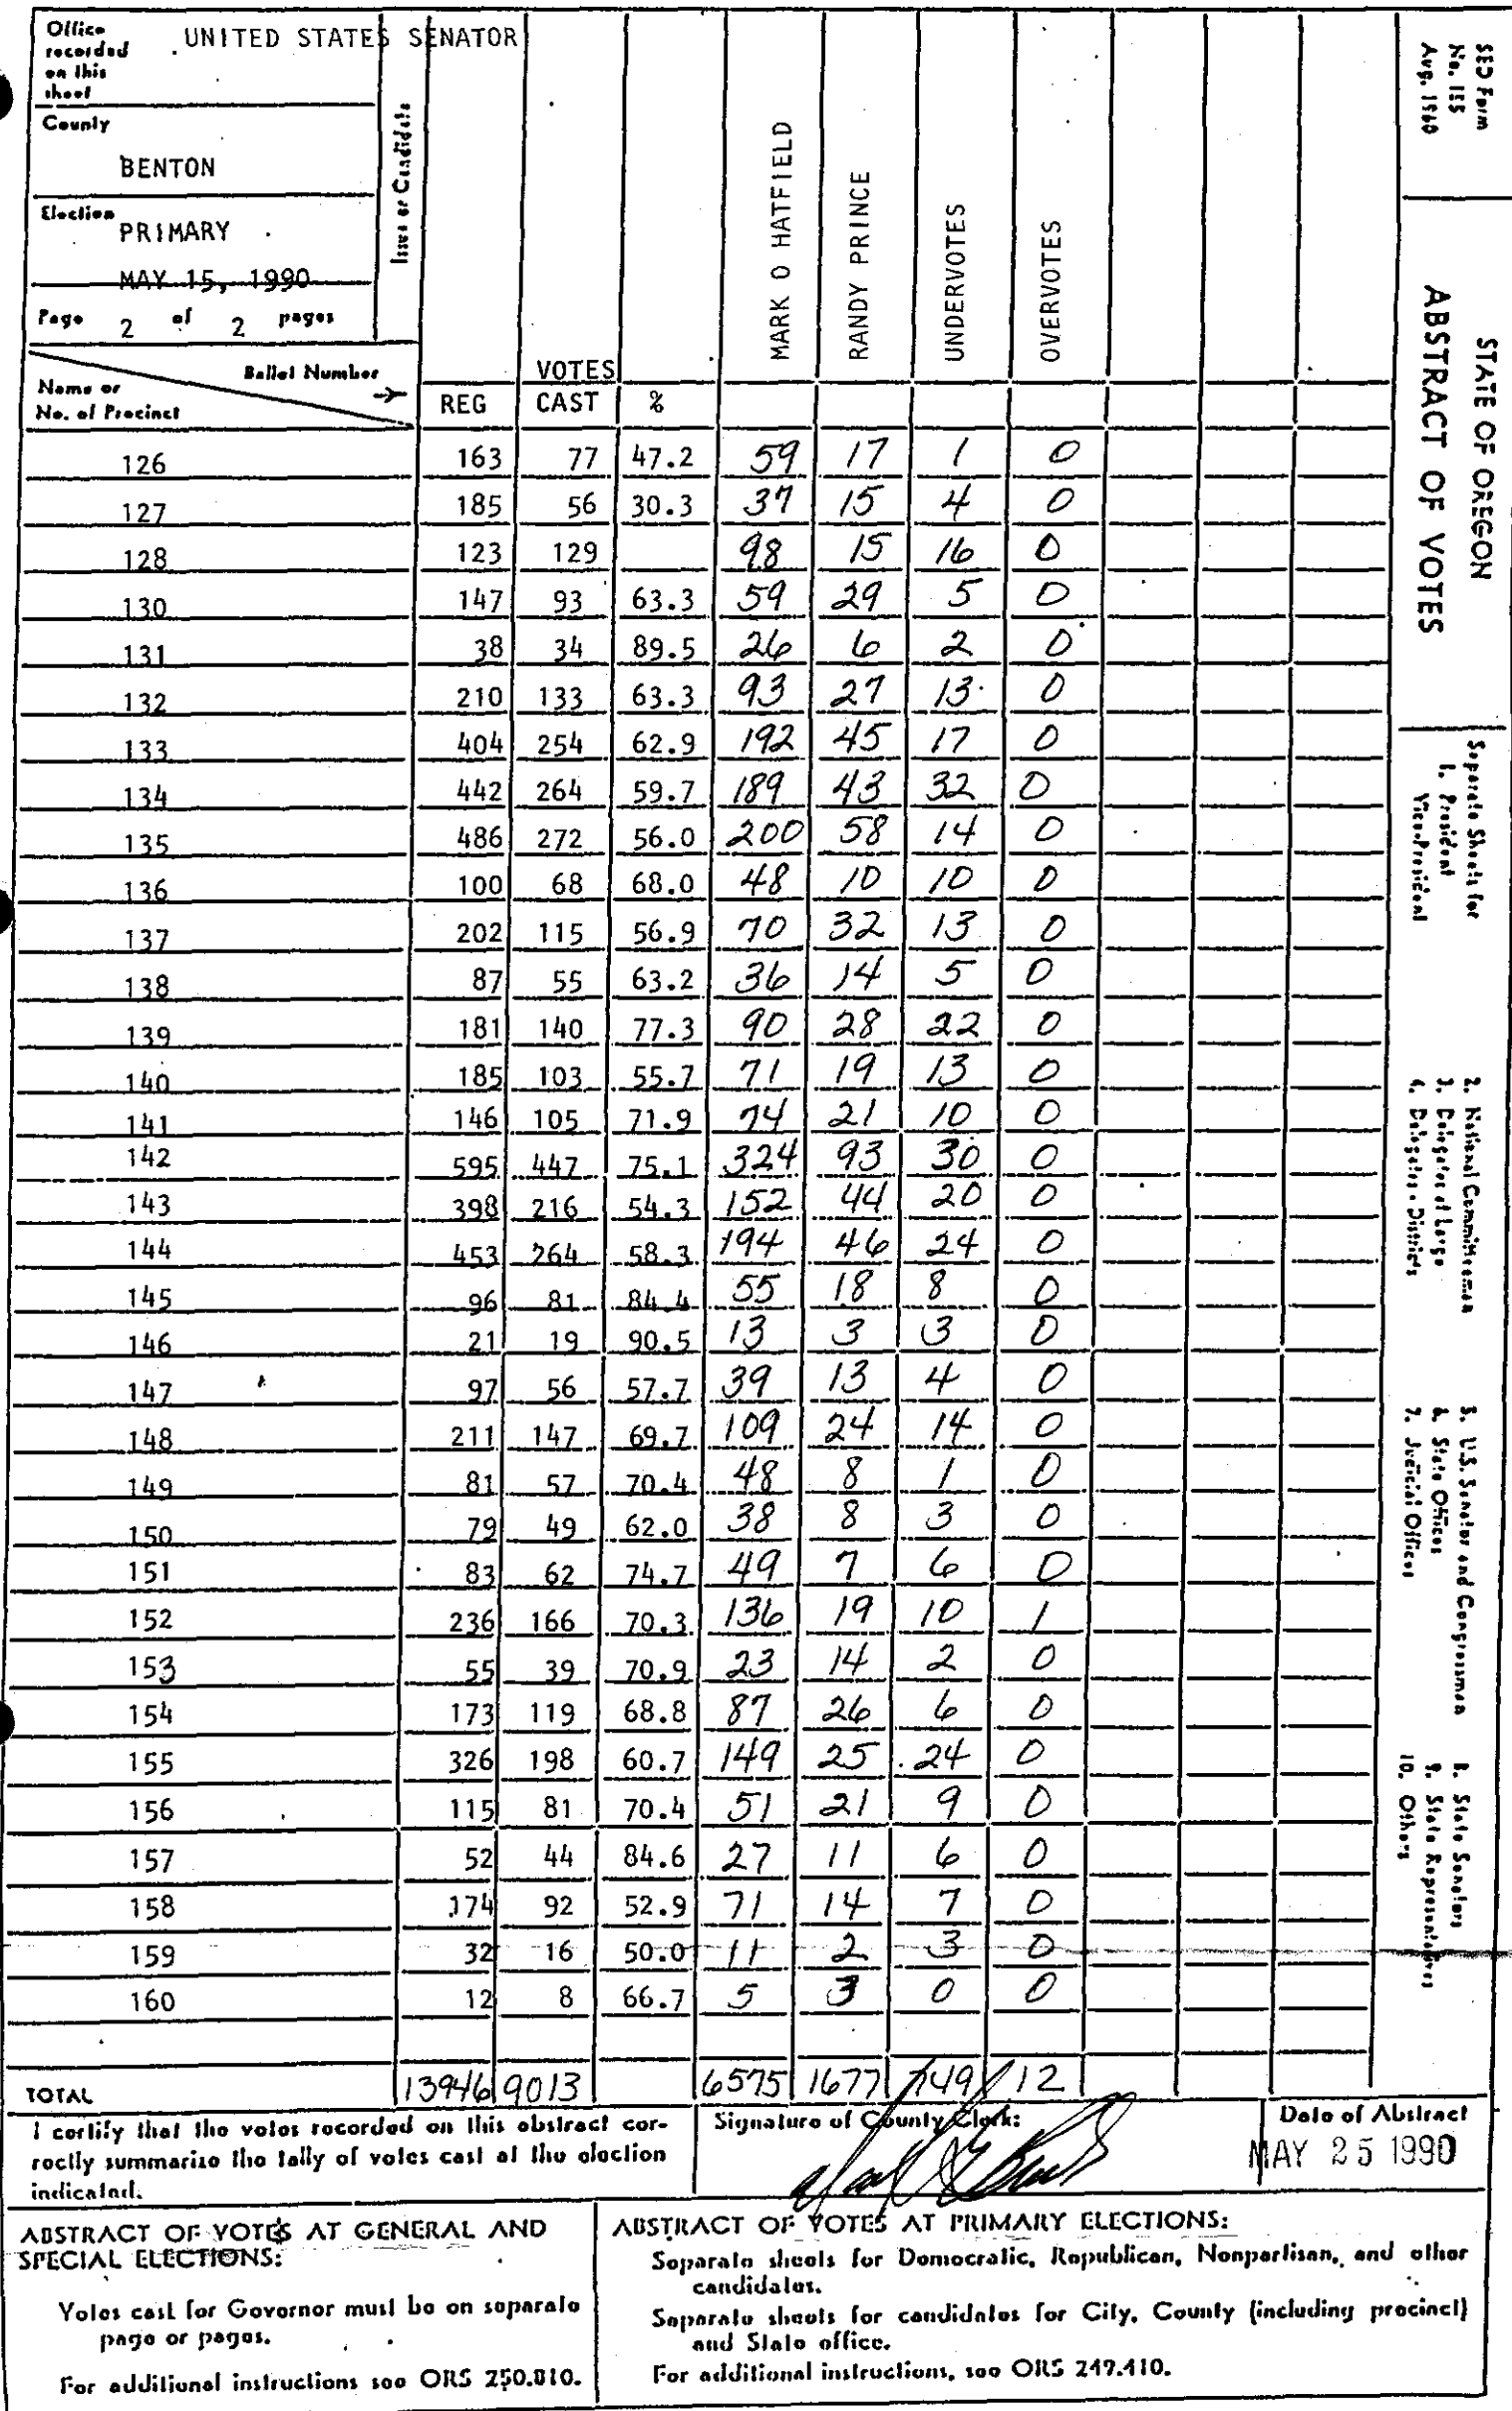 Office recorded on this sheet UNITED STATES SENATOR
County
BENTON
Election PRIMARY
MAY 15, 1990
Page 2 of 2 pages
Issue or Candidate
MARK O HATFIELD
RANDY PRINCE
UNDERVOTES
OVERVOTES
Ballot Number
Name or No. of Precinct
REG VOTES CAST %
126 163 77 47.2 59 17 1 0
127 185 56 30.3 37 15 4 0
128 123 129 98 15 16 0
130 147 93 63.3 59 29 5 0
131 38 34 89.5 26 6 2 0
132 210 133 63.3 93 27 13 0
133 404 254 62.9 192 45 17 0
134 442 264 59.7 189 43 32 0
135 486 272 56.0 200 58 14 0
136 100 68 68.0 48 10 10 0
137 202 115 56.9 70 32 13 0
138 87 55 63.2 36 14 5 0
139 181 140 77.3 90 28 22 0
140 185 103 55.7 71 19 13 0
141 146 105 71.9 74 21 10 0
142 595 447 75.1 324 93 30 0
143 398 216 54.3 152 44 20 0
144 453 264 58.3 194 46 24 0
145 96 81 84.4 55 18 8 0
146 21 19 90.5 13 3 3 0
147 97 56 57.7 39 13 4 0
148 211 147 69.7 109 24 14 0
149 81 57 70.4 48 8 1 0
150 79 49 62.0 38 8 3 0
151 83 62 74.7 49 7 6 0
152 236 166 70.3 136 19 10 1
153 55 39 70.9 23 14 2 0
154 173 119 68.8 87 26 6 0
155 326 198 60.7 149 25 24 0
156 115 81 70.4 51 21 9 0
157 52 44 84.6 27 11 6 0
158 174 92 52.9 71 14 7 0
159 32 16 50.0 11 2 3 0
160 12 8 66.7 5 3 0 0
TOTAL 13946 9013 6575 1677 749 12
I certify that the votes recorded on this abstract correctly summarize the tally of votes cast at the election indicated.
Signature of County Clerk:
Date of Abstract
MAY 25 1990
ABSTRACT OF VOTES AT GENERAL AND SPECIAL ELECTIONS:
Votes cast for Governor must be on separate page or pages.
For additional instructions see ORS 250.810.
ABSTRACT OF VOTES AT PRIMARY ELECTIONS:
Separate sheets for Democratic, Republican, Nonpartisan, and other candidates.
Separate sheets for candidates for City, County (including precinct) and State office.
For additional instructions, see ORS 249.410.
SED Form
No. 115
Aug. 1960
STATE OF OREGON
ABSTRACT OF VOTES
Separate Sheets for
1. President
Vice-President
2. National Committeeman
3. Delegates at Large
4. Delegates - Districts
5. U.S. Senator and Congressmen
6. State Offices
7. Judicial Offices
8. State Senators
9. State Representatives
10. Others